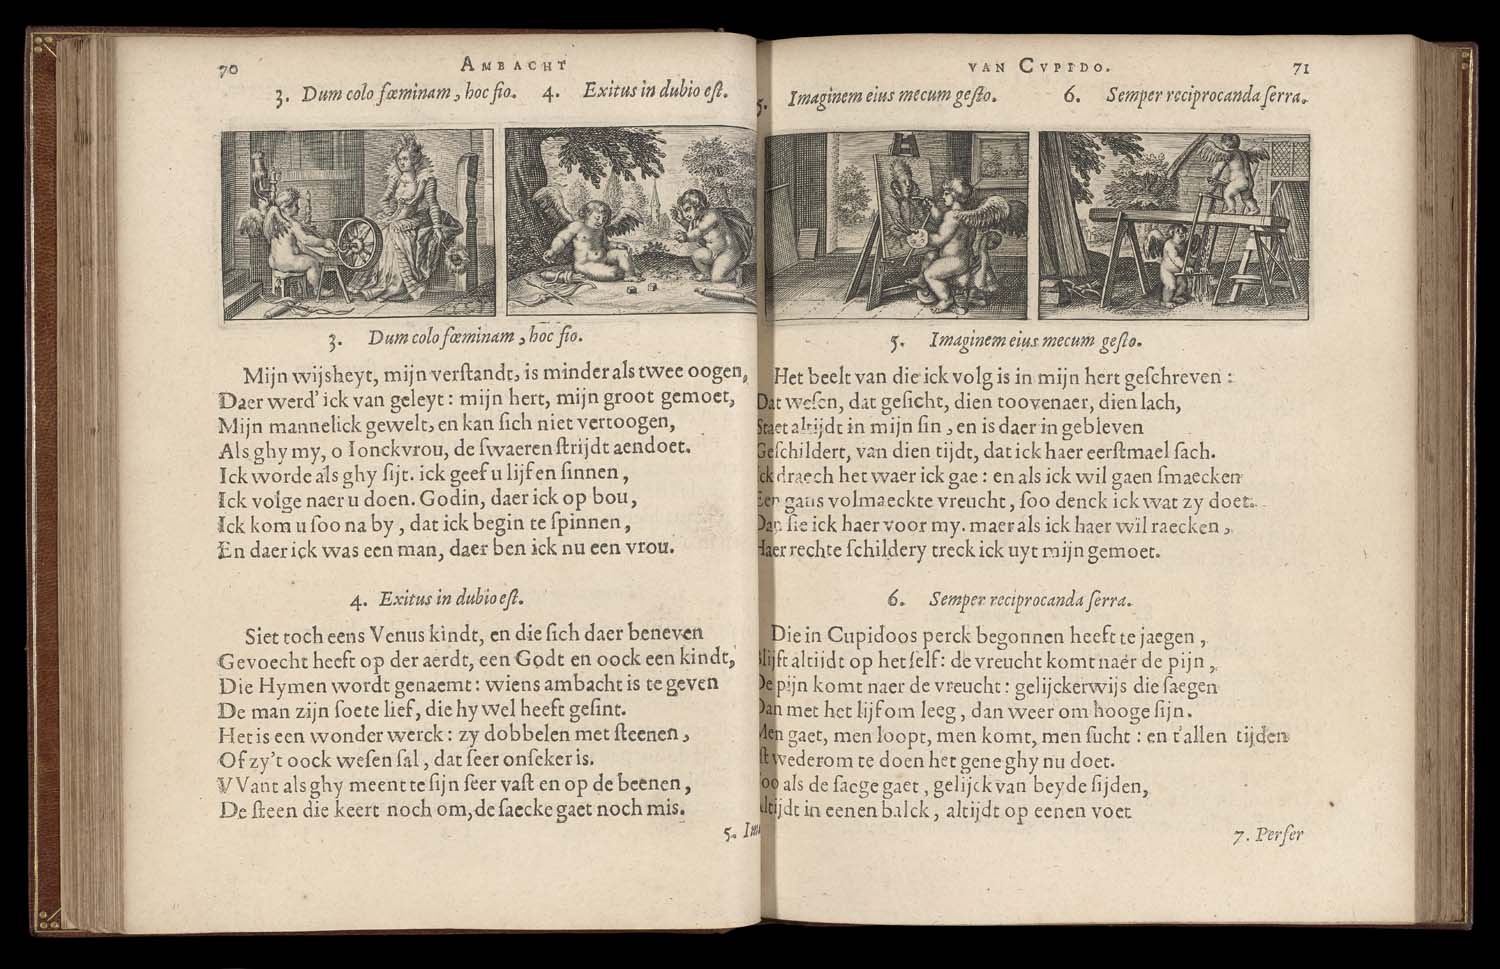 70 AMBACHT
3. Dum colo fœminam, hoc fio. 4. Exitus in dubio eſt.
3. Dum colo fœminam, hoc fio.
Mijn wijsheyt, mijn verſtandt, is minder als twee oogen,
Daer werd' ick van geleyt: mijn hert, mijn groot gemoet,
Mijn mannelick gewelt, en kan ſich niet vertoogen,
Als ghy my, o Ionckvrou, de ſwaeren ſtrijdt aendoet.
Ick worde als ghy ſijt. ick geef u lijf en ſinnen,
Ick volge naer u doen. Godin, daer ick op bou,
Ick kom u ſoo na by, dat ick begin te ſpinnen,
En daer ick was een man, daer ben ick nu een vrou.
4. Exitus in dubio eſt.
Siet toch eens Venus kindt, en die ſich daer beneven
Gevoecht heeft op der aerdt, een Godt en oock een kindt,
Die Hymen wordt genaemt: wiens ambacht is te geven
De man zijn ſoete lief, die hy wel heeft geſint.
Het is een wonder werck: zy dobbelen met ſteenen,
Of zy't oock weſen ſal, dat ſeer onſeker is.
VVant als ghy meent te ſijn ſeer vaſt en op de beenen,
De ſteen die keert noch om, de ſaecke gaet noch mis.
5. Im
VAN CVPIDO. 71
5. Imaginem eius mecum geſto. 6. Semper reciprocanda ſerra.
5. Imaginem eius mecum geſto.
Het beelt van die ick volg is in mijn hert geſchreven:
Dat weſen, dat geſicht, dien toovenaer, dien lach,
Staet altijdt in mijn ſin, en is daer in gebleven
Geſchildert, van dien tijdt, dat ick haer eerſtmael ſach.
Ick draech het waer ick gae: en als ick wil gaen ſmaecken
Een gans volmaeckte vreucht, ſoo denck ick wat zy doet.
Dan ſie ick haer voor my. maer als ick haer wil raecken,
Haer rechte ſchildery treck ick uyt mijn gemoet.
6. Semper reciprocanda ſerra.
Die in Cupidoos perck begonnen heeft te jaegen,
Blijft altijdt op het ſelf: de vreucht komt naer de pijn,
De pijn komt naer de vreucht: gelijckerwijs die ſaegen
Dan met het lijf om leeg, dan weer om hooge ſijn.
Men gaet, men loopt, men komt, men ſucht: en t'allen tijden
Iſt wederom te doen het gene ghy nu doet.
Soo als de ſaege gaet, gelijck van beyde ſijden,
Altijdt in eenen balck, altijdt op eenen voet
7. Perſer